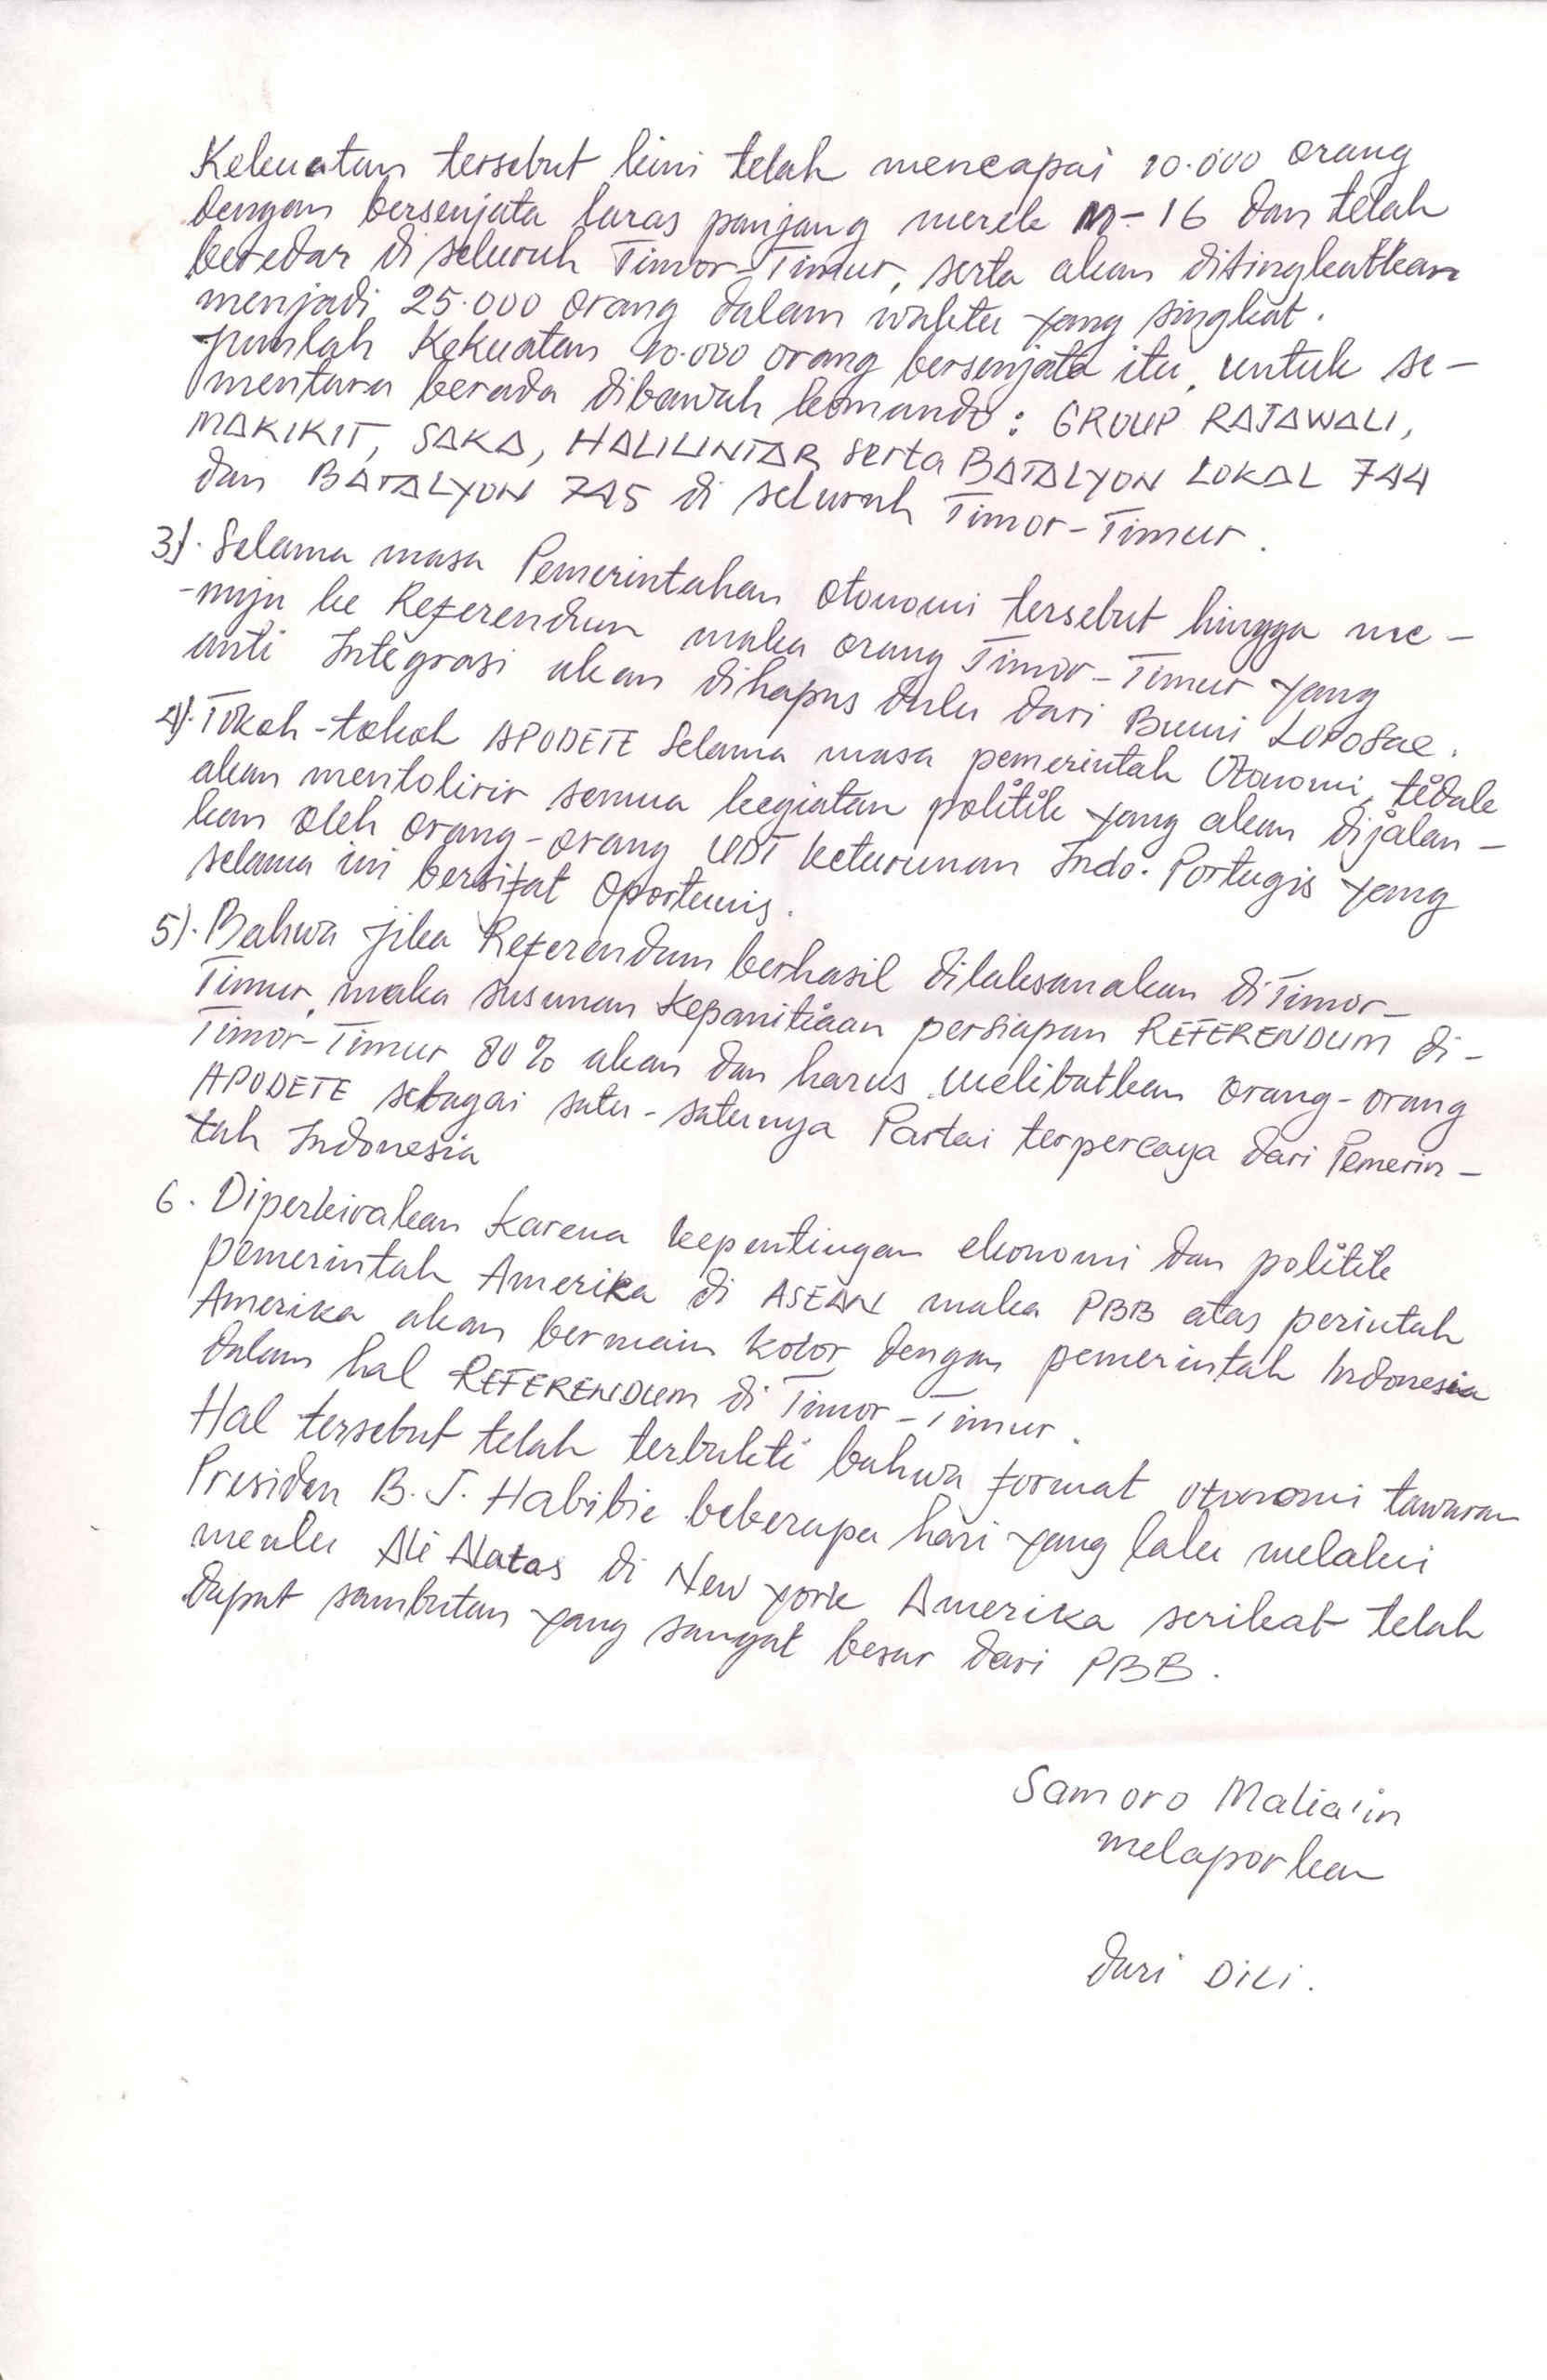 Kekuatan tersebut kini telah mencapai 10.000 orang
dengan bersenjata laras panjang merek M-16 dan telah
beredar di seluruh Timor-Timur, serta akan ditingkatkan
menjadi 25.000 orang dalam waktu yang singkat.
Jumlah Kekuatan 10.000 orang bersenjata itu, untuk se-
mentara berada dibawah komando: GROUP RAJAWALI,
MAKIKIT, SAKA, HALILINTAR serta BATALYON LOKAL 744
dan BATALYON 745 di seluruh Timor-Timur.
3). Selama masa Pemerintahan Otonomi tersebut hingga me-
-nuju ke Referendum maka orang Timor-Timur yang
anti Integrasi akan dihapus dulu dari Bumi LoroSae.
4). Tokoh-tokoh APODETE Selama masa pemerintah Otonomi, tidak
akan mentolirir semua kegiatan politik yang akan dijalan-
kan oleh orang-orang UDT keturunan Indo. Portugis yang
selama ini bersifat Oportunis.
5). Bahwa jika Referendum berhasil dilaksanakan di Timor-
Timur, maka susunan Kepanitiaan persiapan REFERENDUM di-
Timor-Timur 80% akan dan harus melibatkan orang-orang
APODETE sebagai satu-satunya Partai terpercaya dari Pemerin-
tah Indonesia
6. Diperkirakan karena kepentingan ekonomi dan politik
pemerintah Amerika di ASEAN maka PBB atas perintah
Amerika akan bermain kotor dengan pemerintah Indonesia
dalam hal REFERENDUM di Timor-Timur.
Hal tersebut telah terbukti bahwa format otonomi tawaran
Presiden B.J. Habibie beberapa hari yang lalu melalui
menlu Ali Alatas di New York Amerika serikat telah
dapat sambutan yang sangat besar dari PBB.
Samoro Malia'in
melaporkan
dari Dili.